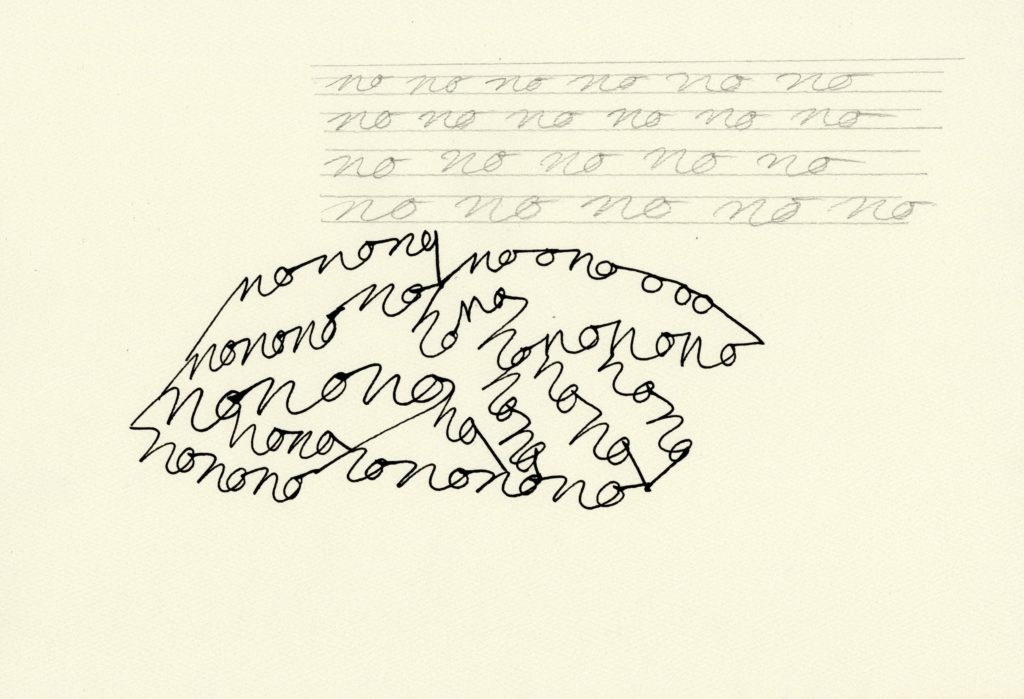 no no no no no no
no no no no no no
no no no no no
no no no no no
nonono
noonoooo
nononono
no no
nononono
nonono
nono
nono
nono
no
nono
nonono
nononono